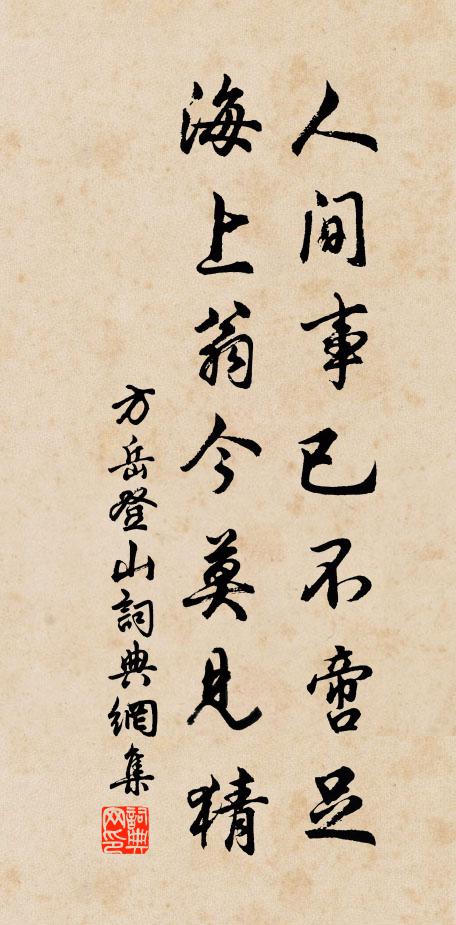 人间事已不啻足
海上翁今莫见猜
方岳登山詞典網集
詞典网印